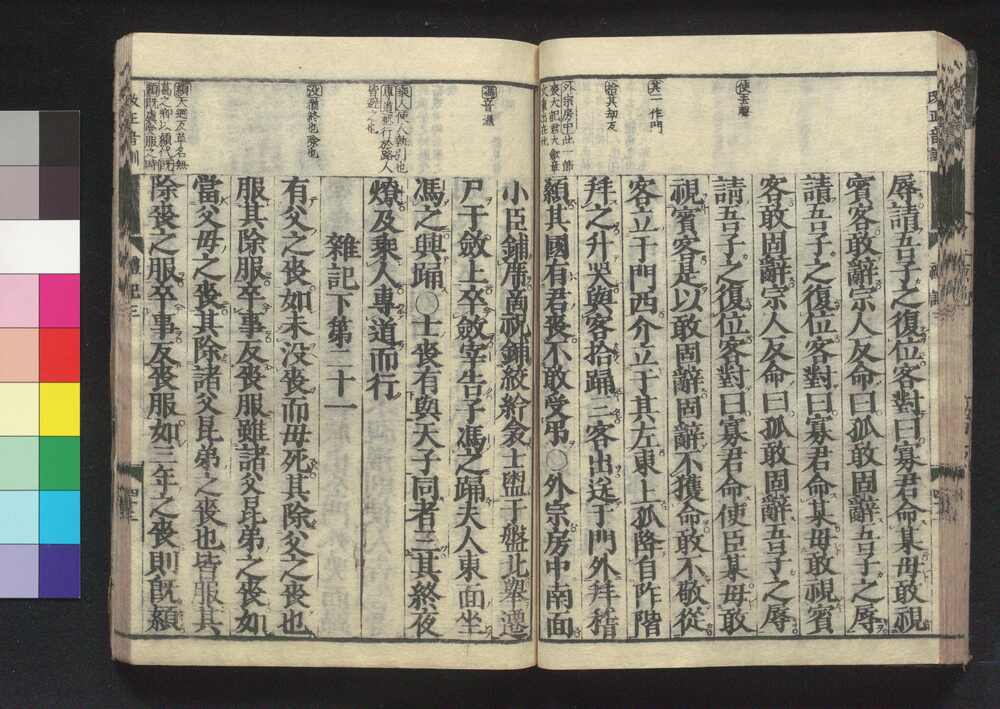 辱請吾子之復位客對曰寡君命某毋敢視
賓客敢固辭宗人反命曰孤敢固辭吾子之辱
請吾子之復位客對曰寡君命某毋敢視賓
客敢固辭宗人反命曰孤敢固辭吾子之辱
請吾子之復位客對曰寡君命使臣某毋敢
視賓客是以敢固辭固辭不獲命敢不敬從
客立于門西介立于其左東上孤降自阼階
拜之升哭與客拾踊三客出送于門外拜稽
顙其國有君喪不敢受弔○外宗房中南面
小臣鋪席商祝鋪絞紟衾士盥于盤北舉遷
尸于斂上卒斂宰告子馮之踊夫人東面坐
馮之興踊○士喪有與天子同者三其終夜
燎及乘人專道而行
雜記下第二十一
有父之喪如未沒喪而母死其除父之喪也
服其除服卒事反喪服雖諸父昆弟之喪如
當父母之喪其除諸父昆弟之喪也皆服其
除喪之服卒事反喪服如三年之喪則既顈
使去聲
其一作門
拾其劫反
外宗房中此一節
馮音憑
乘人使人執引也
專道喪行於路人
皆避之也
没猶終也除也
改正音訓
禮記三